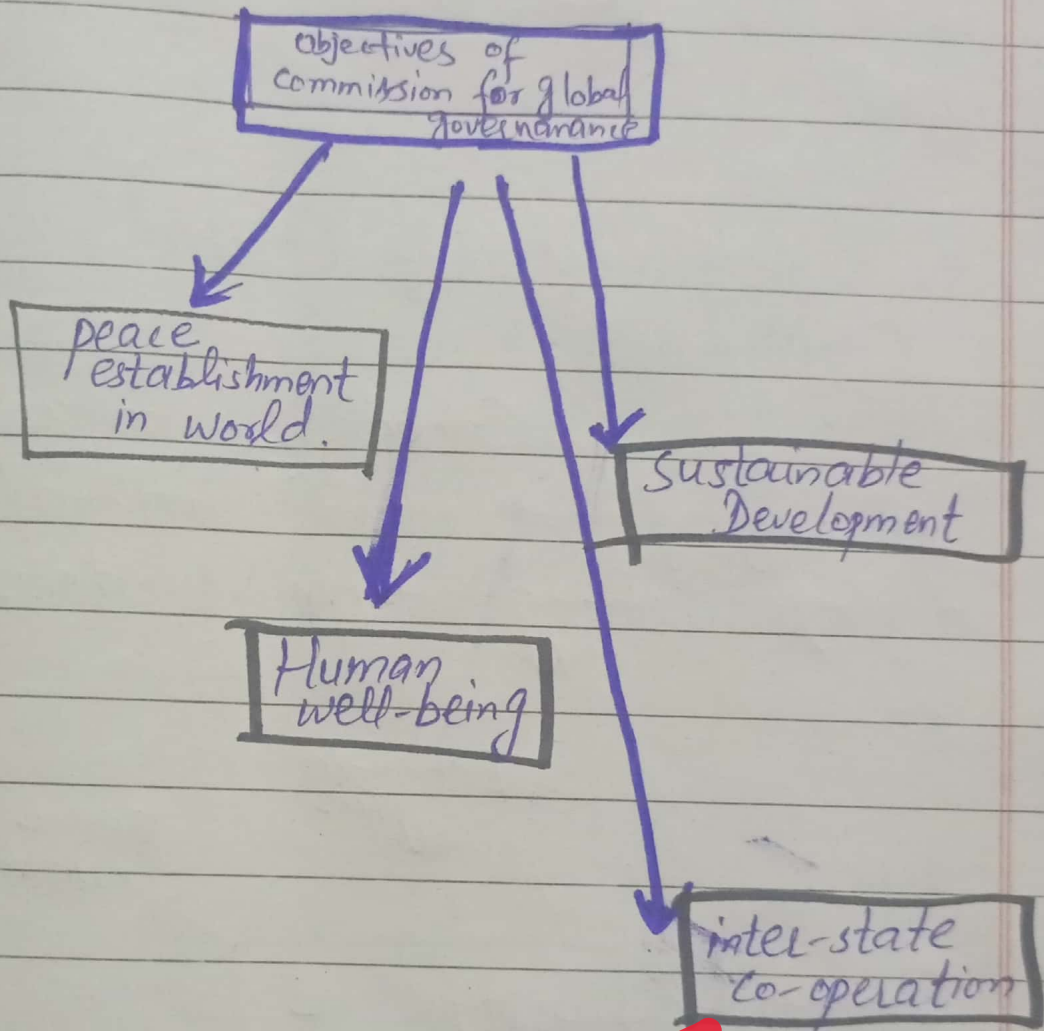 objectives of
commission for global
governarance
peace
establishment
in world.
Sustainable
Development
Human
well-being
inter-state
co-operation